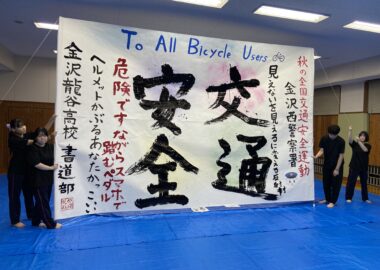 To All Bicycle Users
秋の全国交通安全運動
金沢西警察署
交通
安全
危険ですながらスマホで
踏むペダル
ヘルメットかぶるあなたかっこいい
金沢龍谷高校 書道部